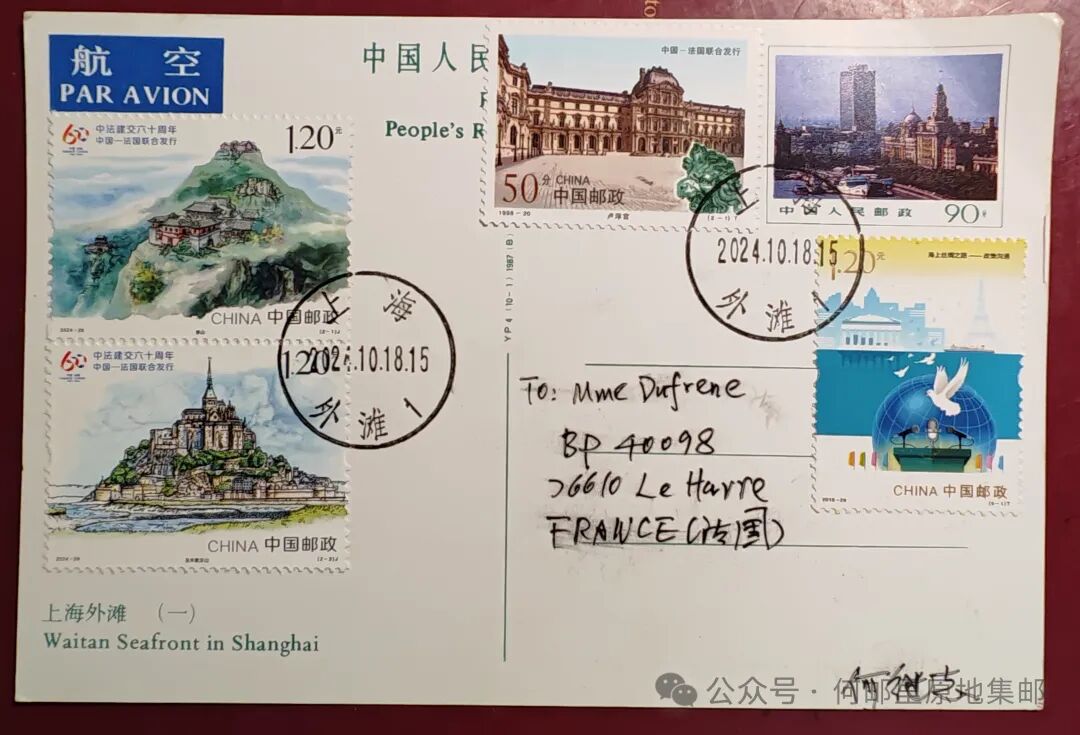 航 空
PAR AVION
中国人民
People's R
中法建交六十周年
中国－法国联合发行
1.20元
CHINA 中国邮政
2024-26
(2-1)J
中法建交六十周年
中国－法国联合发行
1.20
CHINA 中国邮政
(2-2)J
上海
2024.10.18.15
外滩1
中国－法国联合发行
50分 CHINA
中国邮政
1998-20
卢浮宫
(2-1)T
中国人民邮政 90分
上海
2024.10.18.15
外滩1
1.20元
海上丝绸之路——政策沟通
CHINA 中国邮政
YP4(10-1)1987(B)
To: Mme Dufrene
BP 40098
76610 Le Havre
FRANCE(法国)
上海外滩 (一)
Waitan Seafront in Shanghai
公众号·何邮
原地集邮